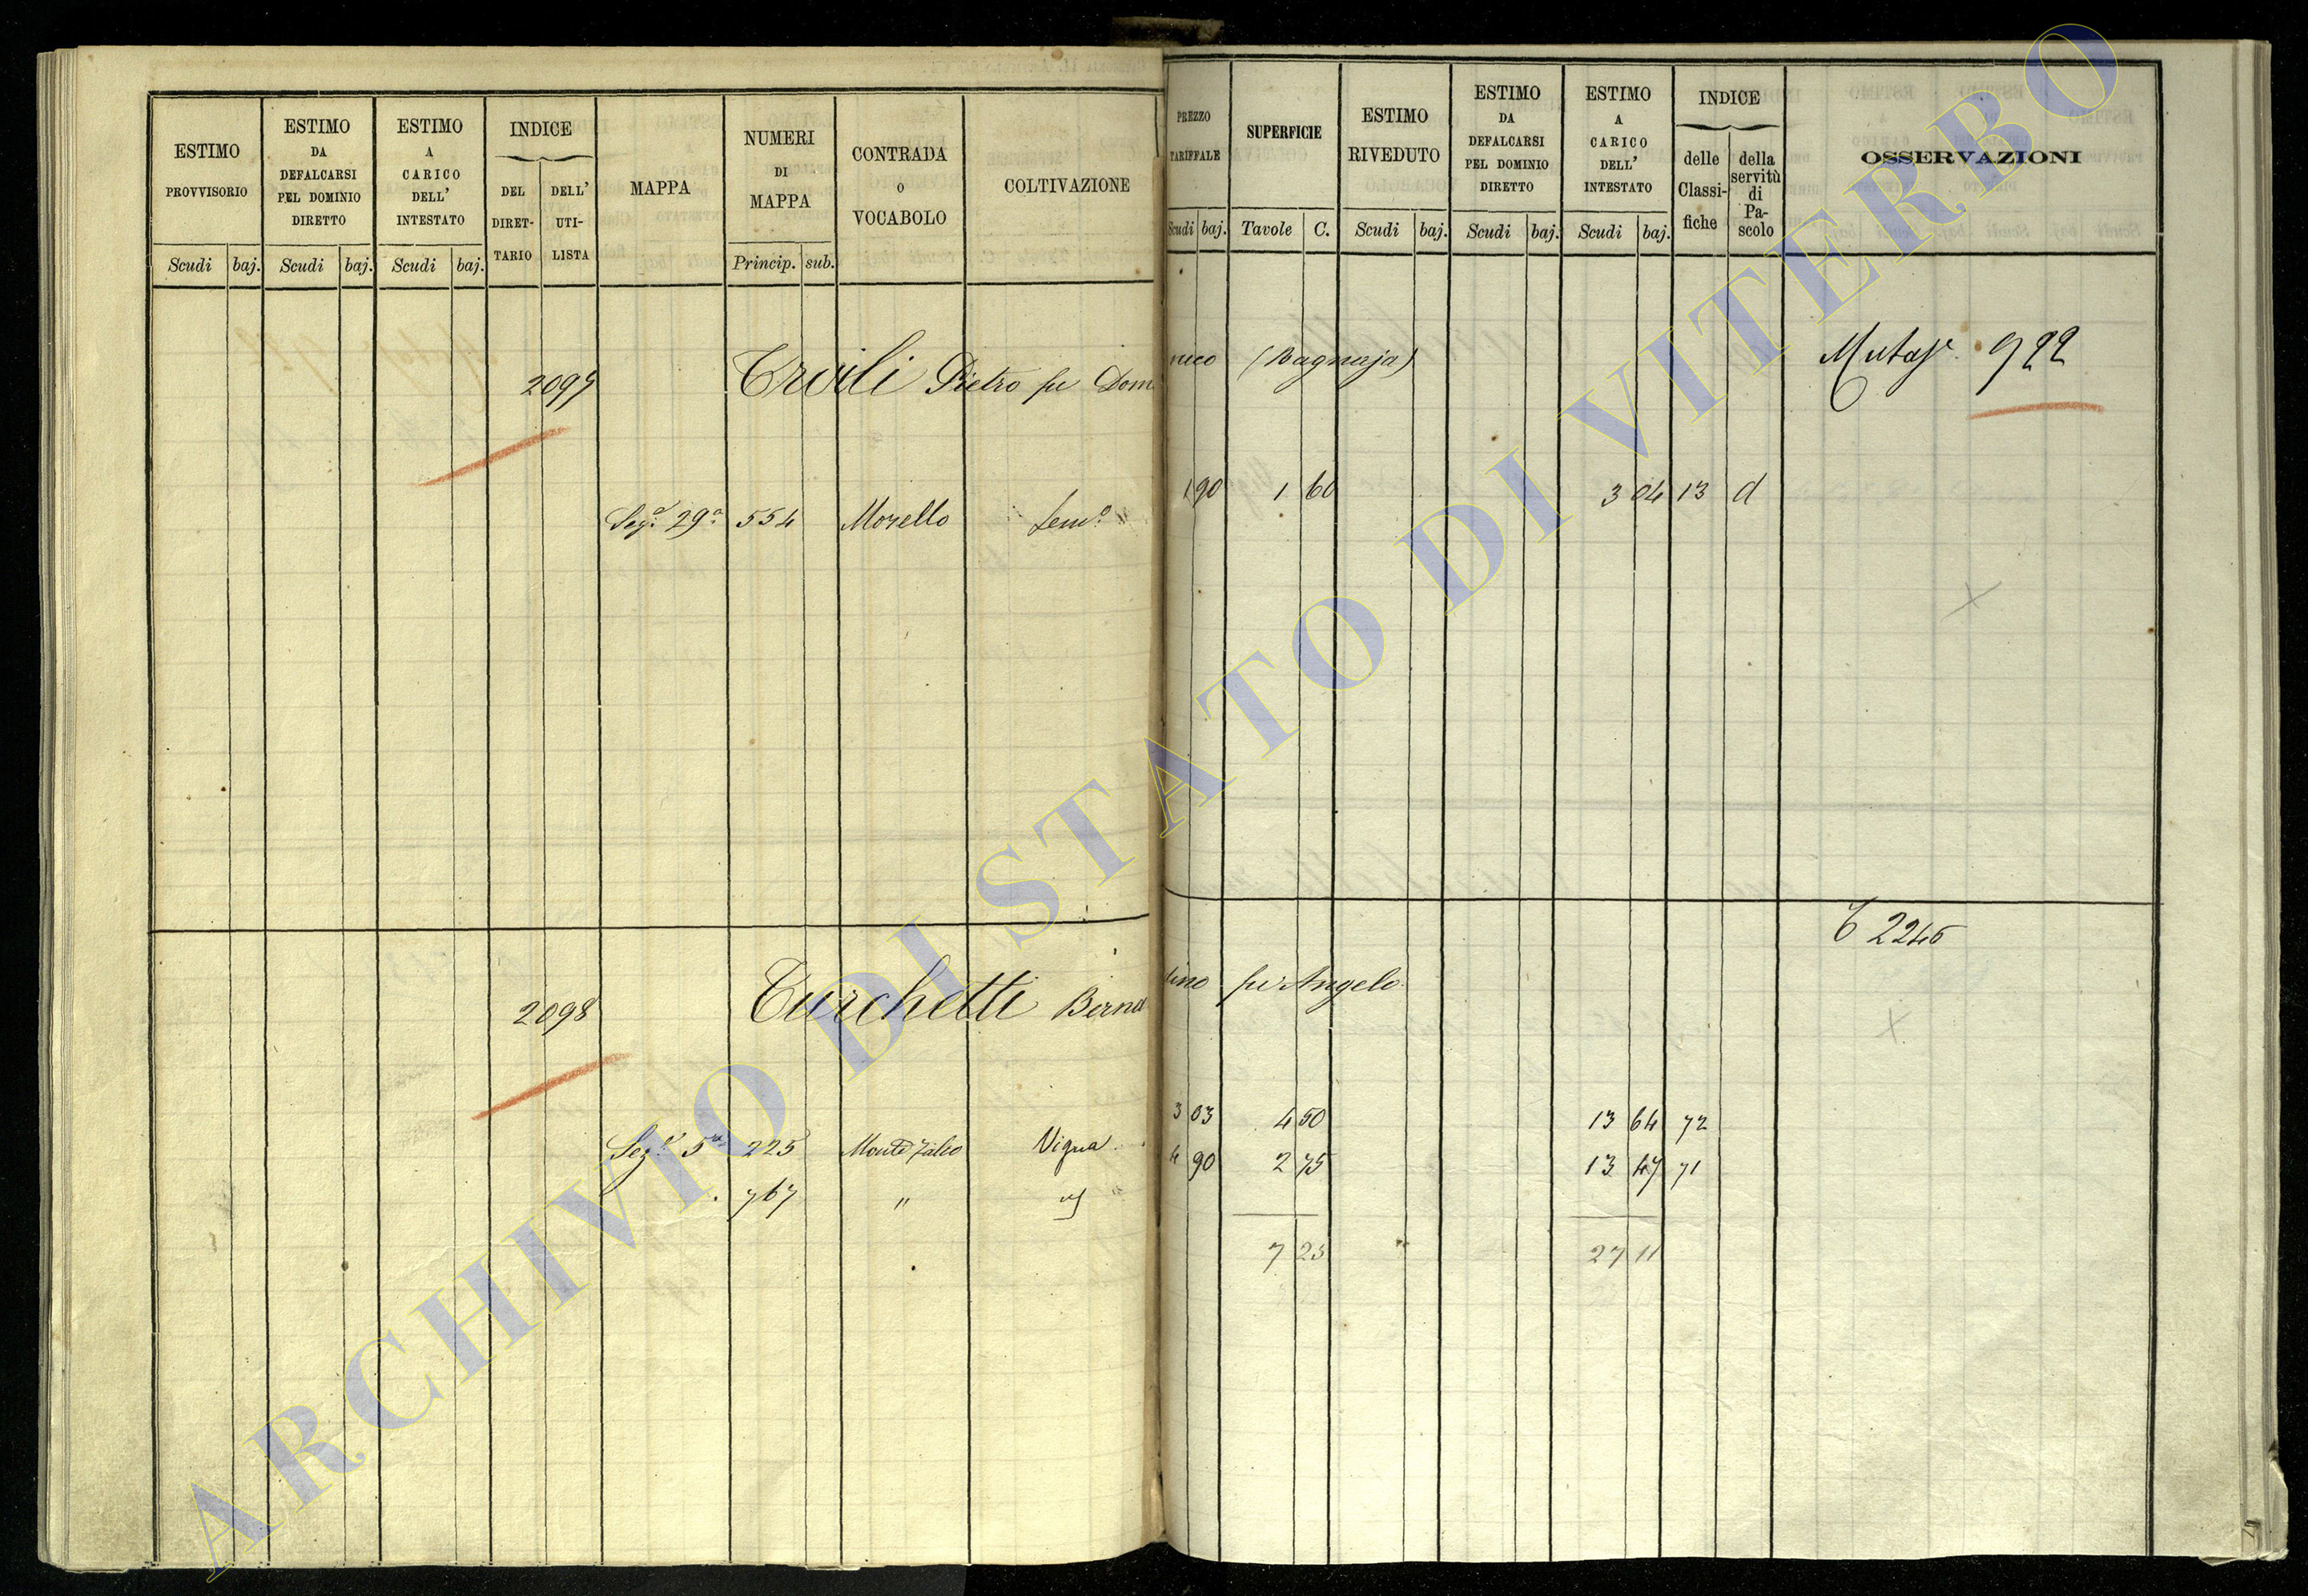 ESTIMO PROVVISORIO
ESTIMO DA DEFALCARSI PEL DOMINIO DIRETTO
ESTIMO A CARICO DELL' INTESTATO
INDICE
DEL DIRET-TARIO
DELL' UTI-LISTA
MAPPA
NUMERI DI MAPPA
CONTRADA O VOCABOLO
COLTIVAZIONE
Scudi baj. Scudi baj. Scudi baj. Princip. sub.
PREZZO TARIFFALE
SUPERFICIE
ESTIMO RIVEDUTO
ESTIMO DA DEFALCARSI PEL DOMINIO DIRETTO
ESTIMO A CARICO DELL' INTESTATO
INDICE
delle Classi-fiche
della servitù di Pa-scolo
OSSERVAZIONI
Scudi baj. Tavole C. Scudi baj. Scudi baj. Scudi baj.
Pietro fu Domenico (Bagnaja) 922
Seg.a 29a 554 Morello Sem.o 1 90 1 60 3 04 13 d
2245
2098 Turchetti Bernardino fu Angelo
Seg.a 5a 225 Vigna 3 03 4 50 13 64 72
767 " 4 90 2 75 13 47 71
7 25 27 11
ARCHIVIO DI STATO DI VITERBO